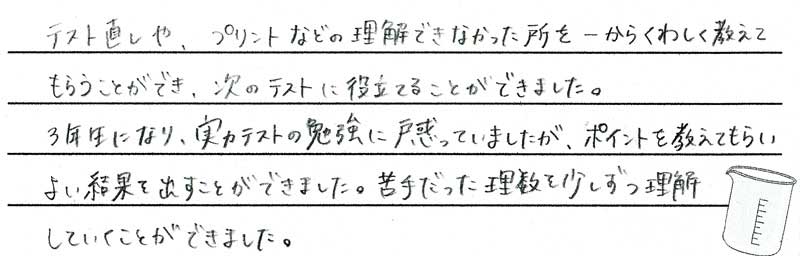 テスト直しや、プリントなどの理解できなかった所を一からくわしく教えて
もらうことができ、次のテストに役立てることができました。
3年生になり、実力テストの勉強に戸惑っていましたが、ポイントを教えてもらい
よい結果を出すことができました。苦手だった理数を少しずつ理解
していくことができました。